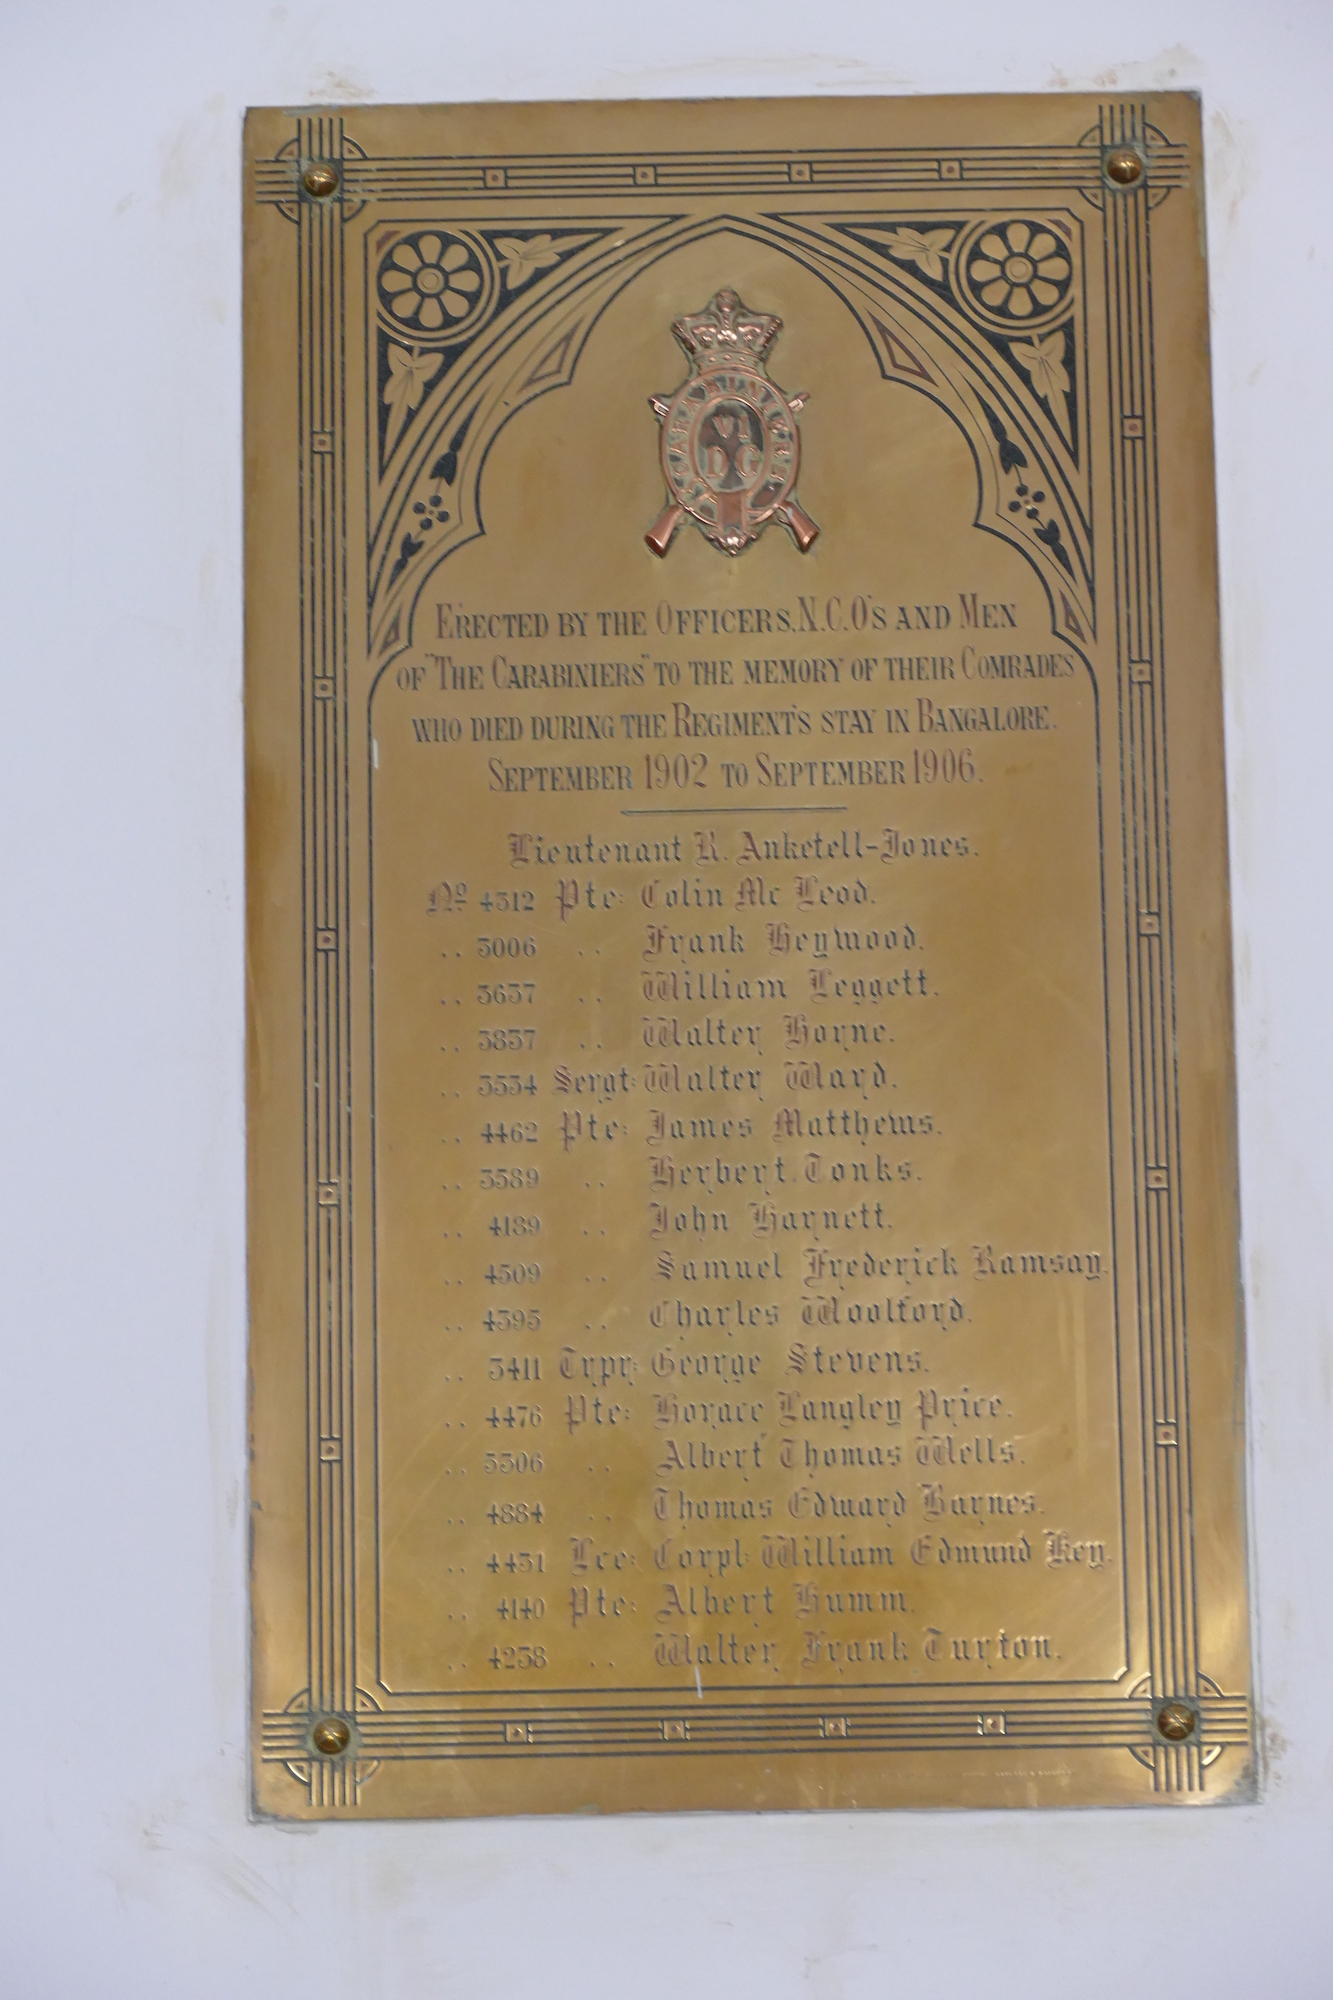 CARABINIERS
VI
DG
ERECTED BY THE OFFICERS, N.C.O'S AND MEN
OF "THE CARABINIERS" TO THE MEMORY OF THEIR COMRADES
WHO DIED DURING THE REGIMENT'S STAY IN BANGALORE.
SEPTEMBER 1902 TO SEPTEMBER 1906.
Lieutenant R. Anketell-Jones.
No 4312 Pte: Colin Mc Leod.
.. 5006 .. Frank Heywood.
.. 3637 .. William Leggett.
.. 3837 .. Walter Horne.
.. 3334 Sergt: Walter Ward.
.. 4462 Pte: James Matthews.
.. 3389 .. Herbert. Tonks.
.. 4189 .. John Harnett.
.. 4509 .. Samuel Frederick Ramsay.
.. 4395 .. Charles Woolford.
.. 3411 Trpr: George Stevens.
.. 4476 Pte: Horace Langley Price.
.. 5306 .. Albert Thomas Wells.
.. 4884 .. Thomas Edward Barnes.
.. 4431 Lce: Corpl: William Edmund Key.
.. 4140 Pte: Albert Humm.
.. 4238 .. Walter Frank Turton.